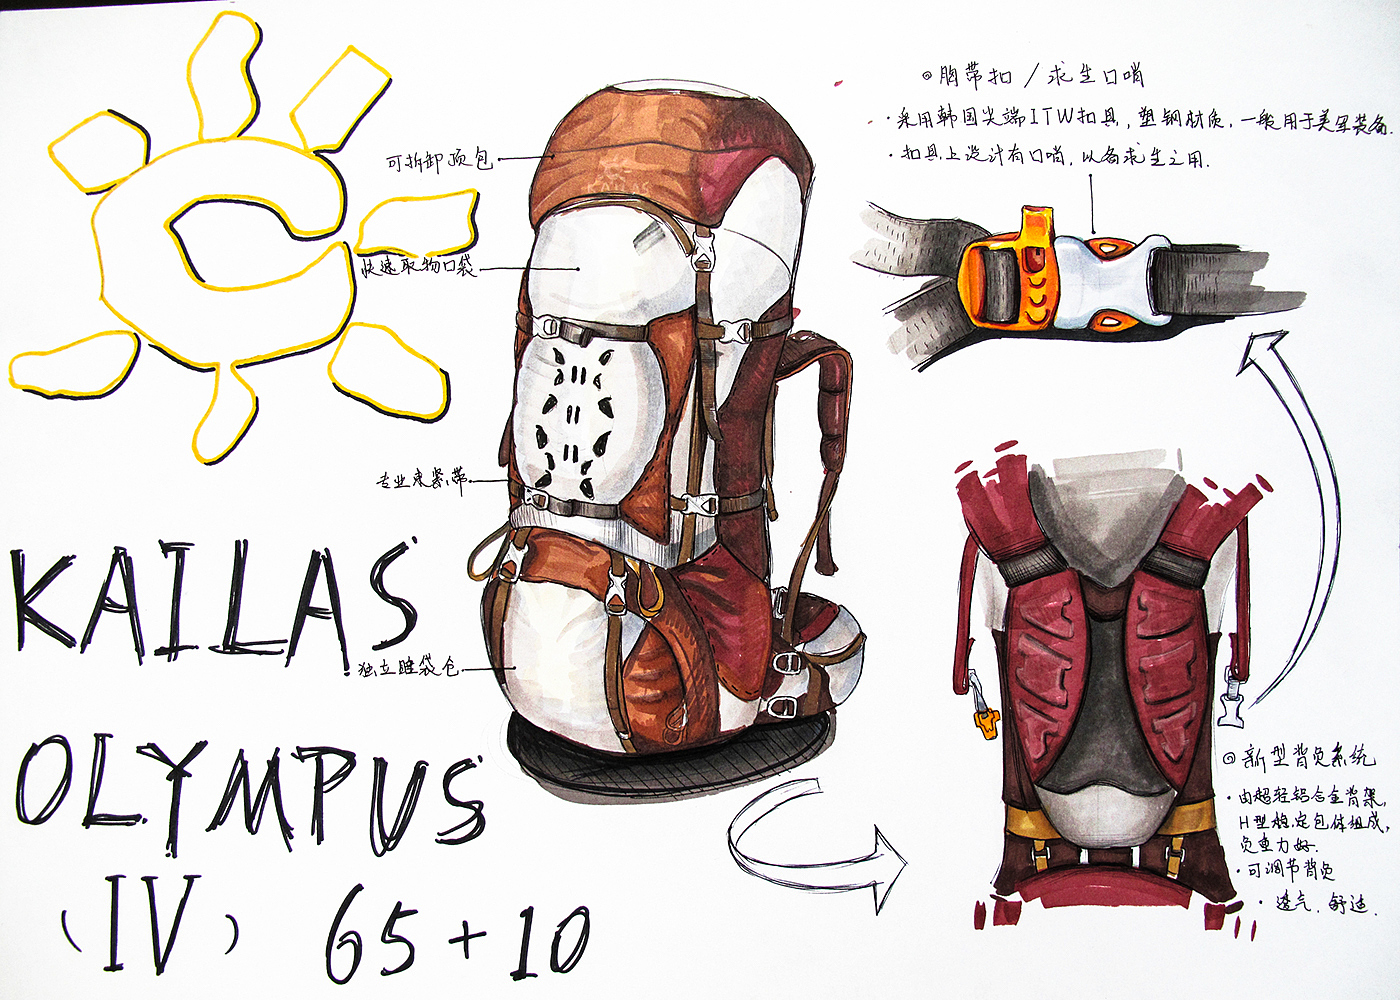 可拆卸顶包
快速取物口袋
专业束紧带
独立睡袋仓
KAILAS
OLYMPUS
(IV) 65+10
◎胸带扣/求生口哨
·采用韩国尖端ITW扣具,塑钢材质,一般用于美军装备.
·扣具上设计有口哨,以备求生之用.
◎新型背负系统
·由超轻铝合金背架,
H型稳定包体组成,
负重力好.
·可调节背负
·透气.舒适.